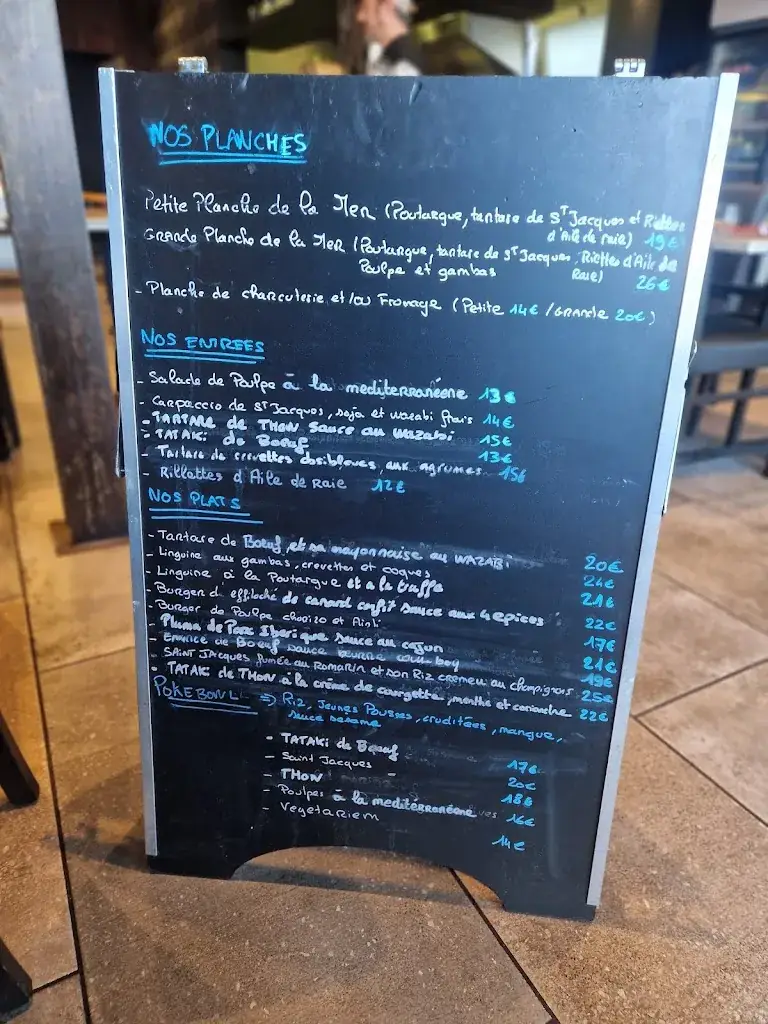 NOS PLANCHES
Petite Planche de la Mer (Poutargue, tartare de ST Jacques et Rillettes
d'Aile de raie) 19€
GRANDE Planche de la MER (Poutargue, tartare de ST Jacques, Rillettes d'Aile de
Poulpe et gambas Raie) 26€
- Planche de charcuterie et/ou Fromage (Petite 14€ / GRANDE 20€)
NOS ENTREES
- Salade de Poulpe à la mediterranéene 13€
- Carpaccio de ST Jacques, soja et wazabi frais 14€
- TARTARE de THON Sauce au Wazabi 15€
- TATAKI de Boeuf 13€
- Tartare de crevettes obsiblows aux agrumes 15€
- Rillettes d'Aile de RAIE 12€
NOS PLATS
- Tartare de Boeuf et sa mayonnaise au WAZABI 20€
- Linguine aux gambas, crevettes et coques 24€
- Linguine à la Poutargue et a la truffe 21€
- Burger d'effiloché de canard confit sauce aux 4 epices 22€
- Burger de Poulpe chorizo et Aïoli 17€
- Pluma de Porc Iberique sauce au cajun 21€
- de Boeuf sauce beurre cow boy 19€
- SAINT JACQUES fumée au Romarin et son Riz cremeu au champignons 25€
- TATAKI de THON à la crème de courgette, menthe et coriandre 22€
POKE BOWL => Riz, Jeunes Pousses, cruditées, mangue,
sauce sesame
- TATAKI de Boeuf 17€
- Saint Jacques 20€
- THON 18€
- Poulpes à la mediterranéene 16€
- Vegetariem 14€